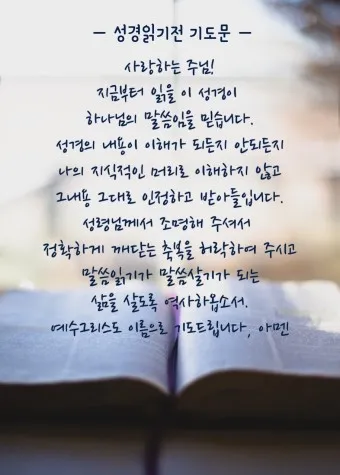 — 성경읽기전 기도문 —
사랑하는 주님!
지금부터 읽을 이 성경이
하나님의 말씀임을 믿습니다.
성경의 내용이 이해가 되든지 안되든지
나의 지식적인 머리로 이해하지 않고
그내용 그대로 인정하고 받아들입니다.
성령님께서 조명해 주셔서
정확하게 깨닫는 축복을 허락하여 주시고
말씀읽기가 말씀살기가 되는
삶을 살도록 역사하옵소서.
예수그리스도 이름으로 기도드립니다, 아멘